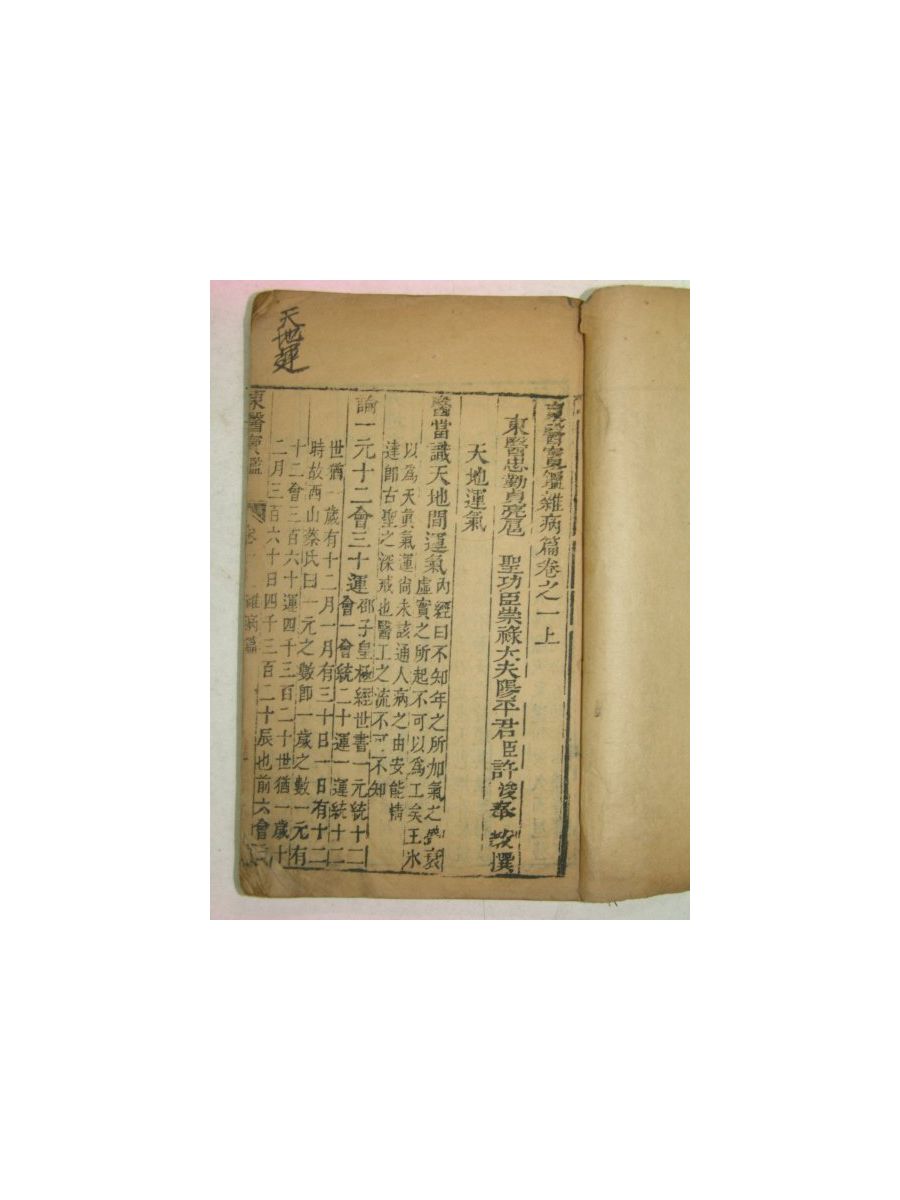 天地運
東醫寶鑑雜病篇卷之一上
東醫忠勤貞亮扈 聖功臣崇祿大夫陽平君臣許浚奉 敎撰
天地運氣
醫當識天地間運氣內經曰不知年之所加氣之盛衰
虛實之所起不可以爲工矣王氷
以爲天眞氣運尙未該通人病之由安能精
達卽古聖之深戒也醫工之流不可不知
論一元十二會三十運邵子皇極經世書一元統十二
會一會統二十運一運統十二
世猶一歲有十二月一月有三十日一日有十二
時故西山蔡氏曰一元之數卽一歲之數一元有
十二會三百六十運四千三百二十世猶一歲十
二月三百六十日四千三百二十辰也前六會
東醫寶鑑 卷一 雜病篇